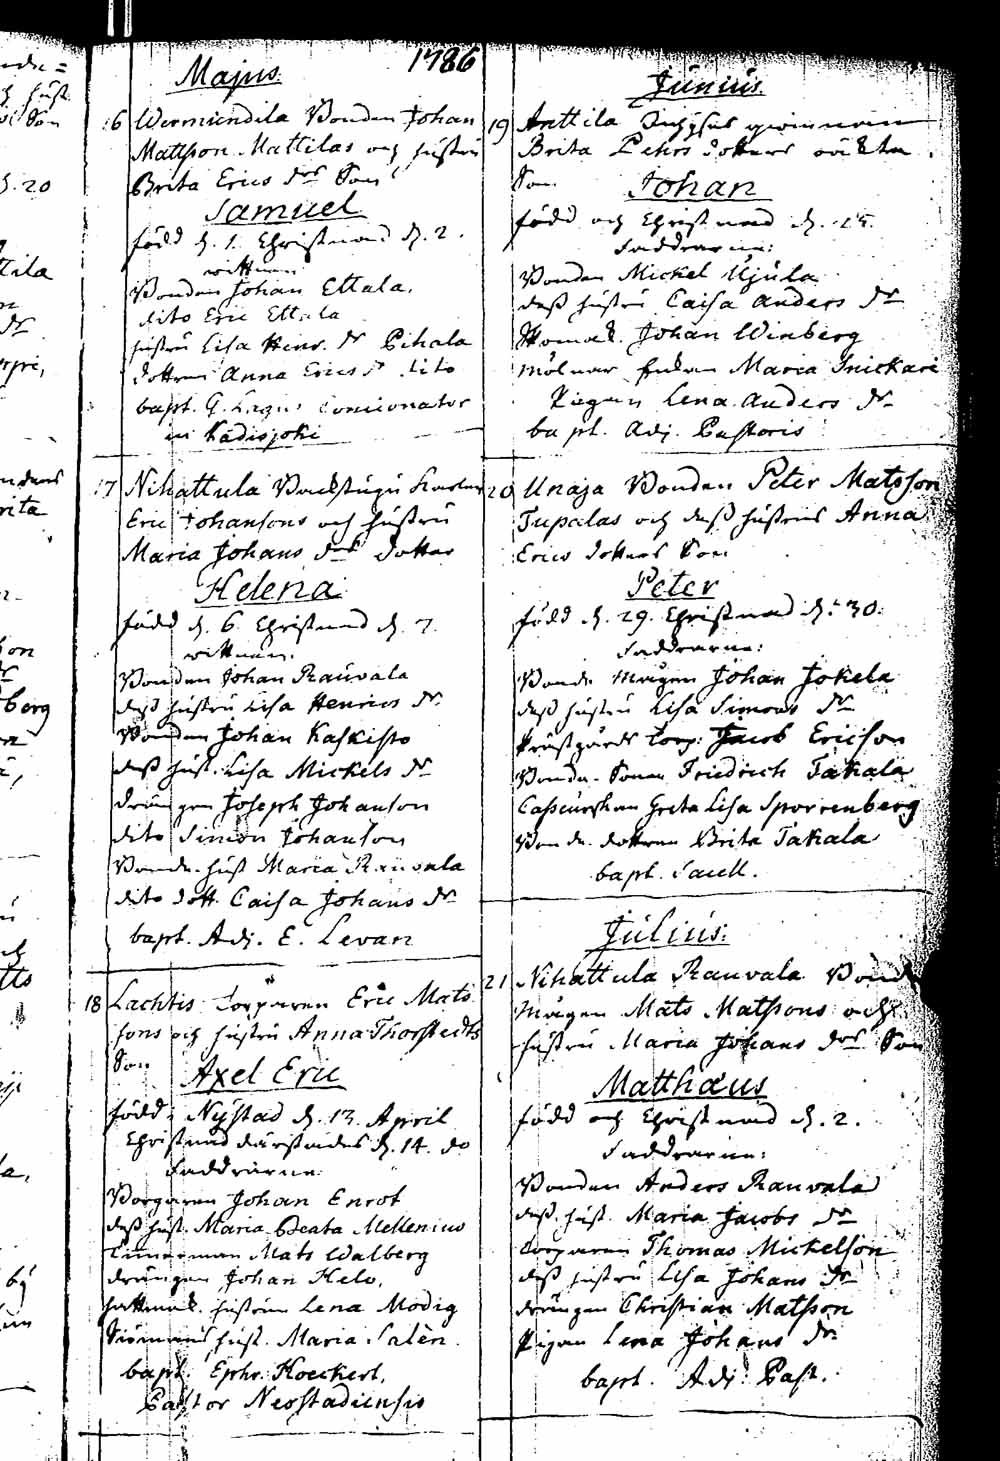 1786
Majus.
16 Wermundila Bonden Johan
Mattsson Mattilas och hustru
Brita Erics drs Son
Samuel
född d. 1. Christnad d. 2.
wittnen
Bonden Johan Ettala.
dito Eric Ettala
hustru Lisa Henr. dr Pihala
dottren Anna Erics dr dito
bapt. G. Lagus Concionator
in Kadisjoki
17 Nihattula Backstugu karlen
Eric Johansons och hustru
Maria Johans drs dotter
Helena
född d. 6. Christnad d. 7.
wittnen.
Bonden Johan Rauvala
dess hustru Lisa Henrics dr
Bonden Johan Kaskisto
dess hust. Lisa Mickels dr
drängen Joseph Johanson
dito Simon Johanson
Bonde hust Maria Rauvala
dito dott. Caisa Johans dr
bapt. Adj. E. Levan
18 Lachtis Torparen Eric Mats
sons och hustru Anna Thorstedts
Son
Axel Eric
född i Nystad d. 13. April
Christnad därstädes d. 14. do
Faddrarne
Borgaren Johan Enrot
dess hust. Maria Beata Mellenius
Timmerman Mats Walberg
drängen Johan Helo,
hustrun Lena Modig
hust. Maria Salèn.
bapt. Ephr. Hoeckert,
Pastor Neostadiensis
Junius.
19 Anttila
Brita Pehrs dotters oäkta
Son
Johan
född och Christnad d.
Faddrarne:
Bonden Mickel Ujula
dess hustru Caisa Anders dr
Johan Winberg
Maria Snickari
Pigan Lena Anders dr
bapt. Adj. Pastoris
20 Unaja Bonden Peter Matsson
Tupalas och dess hustrus Anna
Erics dotters Son
Peter
född d. 29. Christnad d. 30.
Faddrarne:
Bonde Mågen Johan Jokela
dess hustru Lisa Simons dr
Prästgårds Torp. Jacob Ericson
Bonde Sonen Friedrich Takala
Greta Lisa Sporrenberg
Bonde dottren Brita Takala
bapt.
Julius.
21 Nihattula Rauvala Bonde
Mågen Mats Matssons och
hustru Maria Johans drs Son
Matthæus
född och Christnad d. 2.
Faddrarne:
Bonden Anders Rauvala
dess hust. Maria Jacobs dr
Torparen Thomas Mickelson
dess hustru Lisa Johans dr
drängen Christian Matsson
Pigan Lena Johans dr
bapt. Adj. Past.